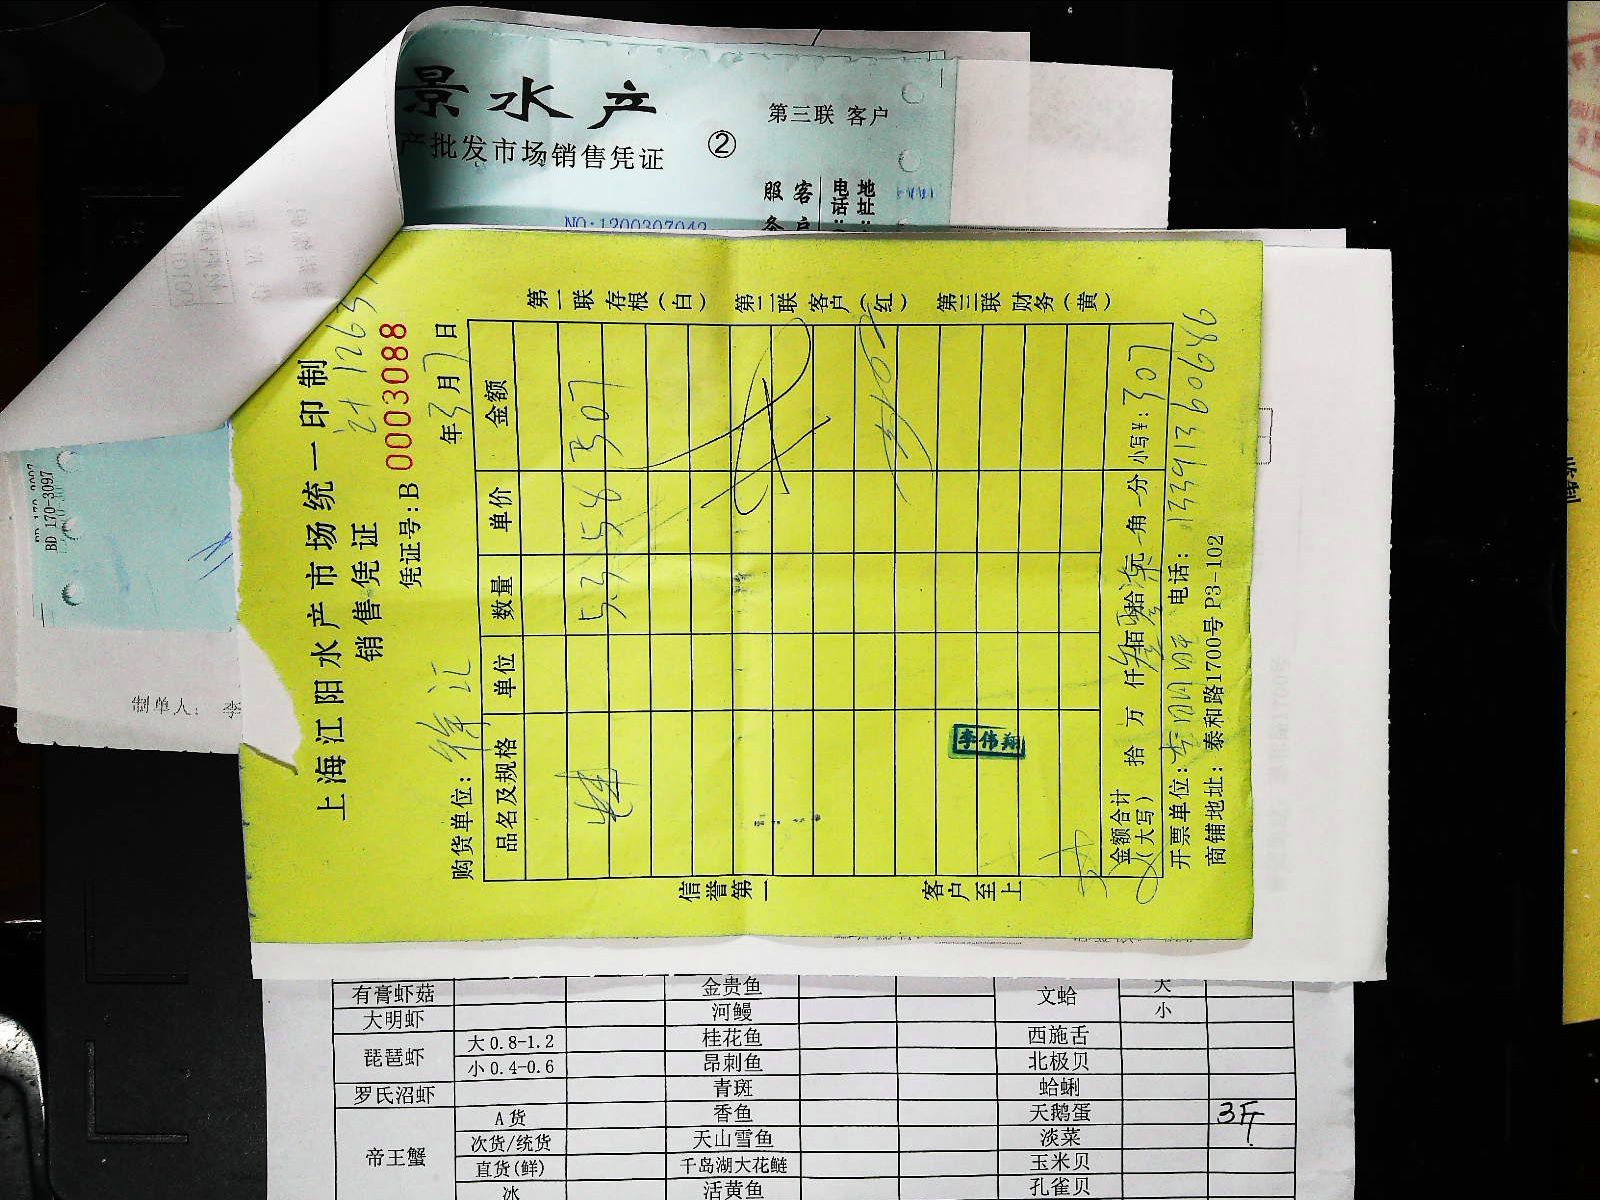 景水产
产批发市场销售凭证
②
第三联 客户
服 客
务 户
电话:
地址:
NO:1200307042
BD 170-3097
制单人: 李
上海江阳水产市场统一印制
销售凭证
凭证号:B 0003088
购货单位: 徐汇
年 3月7日
品名及规格 单位 数量 单价 金额
5.3 58 307
李伟翔
金额合计(大写) 拾 万 仟 叁佰 零拾 柒元 角 分 小写¥: 307
开票单位: 电话: 13391360646
商铺地址: 泰和路1700号 P3-102
信誉第一
客户至上
第一联存根(白) 第二联客户(红) 第三联财务(黄)
有膏虾菇 金贵鱼 文蛤 大
大明虾 河鳗 小
琵琶虾 大0.8-1.2 桂花鱼 西施舌
小0.4-0.6 昂刺鱼 北极贝
罗氏沼虾 青斑 蛤蜊
帝王蟹 A货 香鱼 天鹅蛋 3斤
次货/统货 天山雪鱼 淡菜
直货(鲜) 千岛湖大花鲢 玉米贝
冰 活黄鱼 孔雀贝